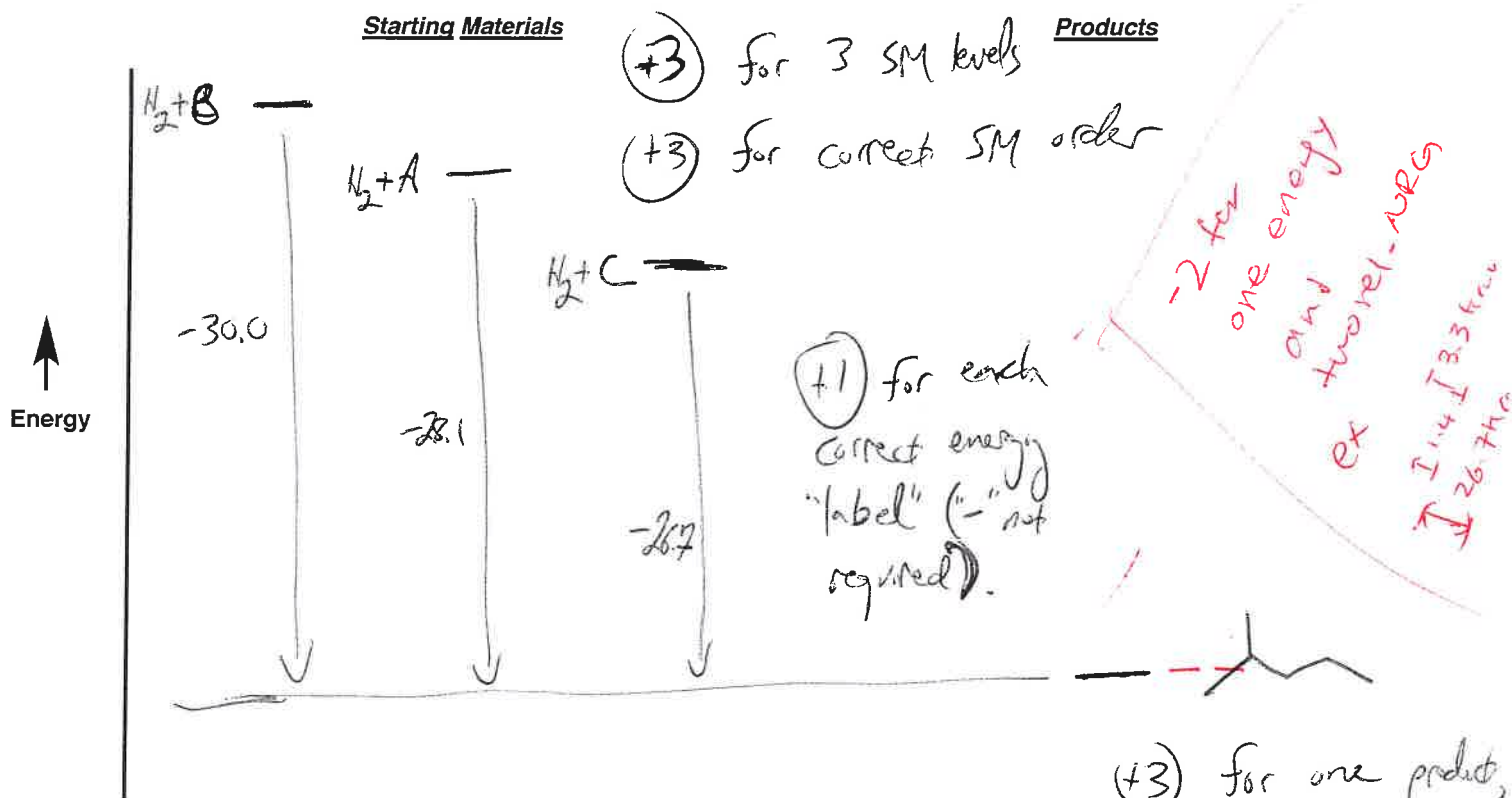 Starting Materials
Products
+3 for 3 SM levels
+3 for correct SM order
H2+B
H2+A
H2+C
-30.0
-28.1
-26.7
Energy
+1 for each
correct energy
"label" ("-" not
required).
-2 for
one energy
and
two rel-NRG
ex
1.4 3.3
26.7
(+3) for one product,